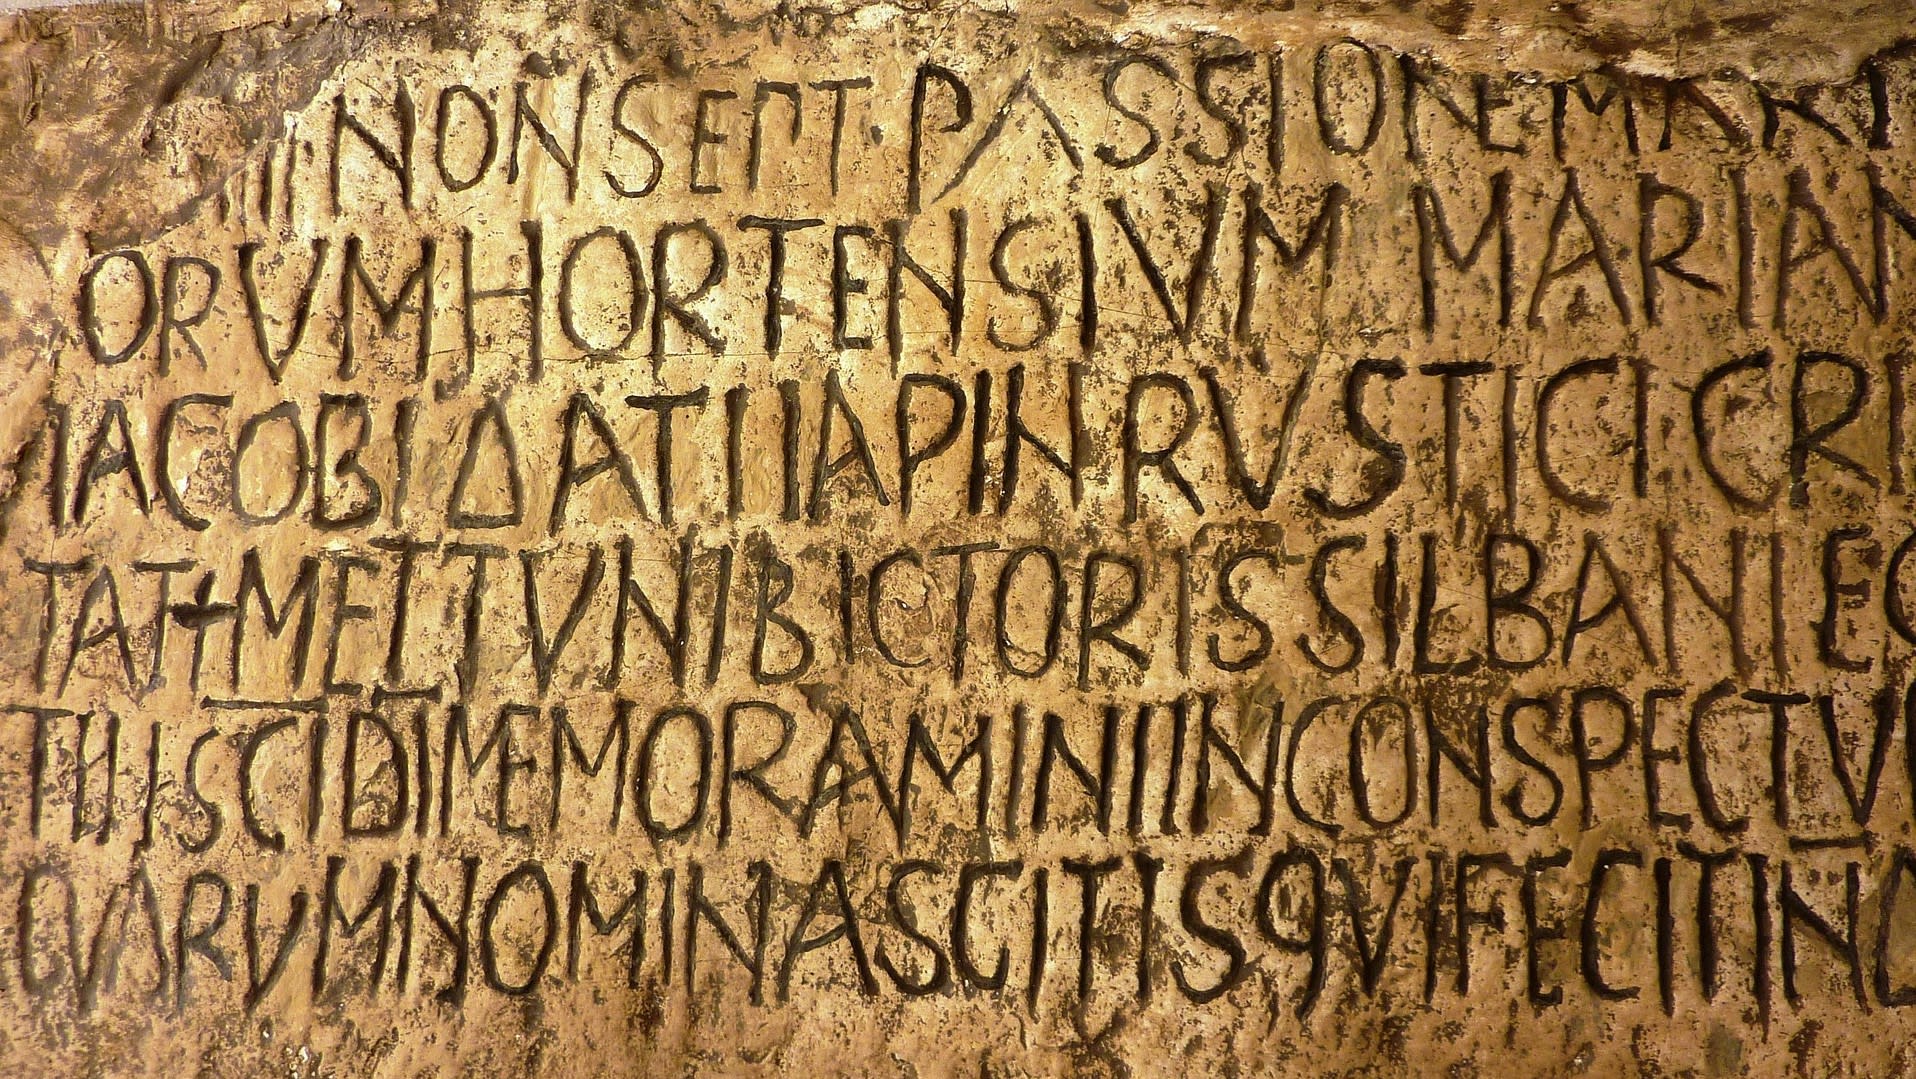 III NON SEPT PASSIONE MARTI
ORVM HORTENSIVM MARIAN
IACOBI ΔATI IAPIN RVSTICI CRI
TAT METTVNI BICTORIS SILBANI EG
SCI DI MEMORAMINI IN CONSPECTV
QVARVM NOMINA SCITIS QVI FECIT IND